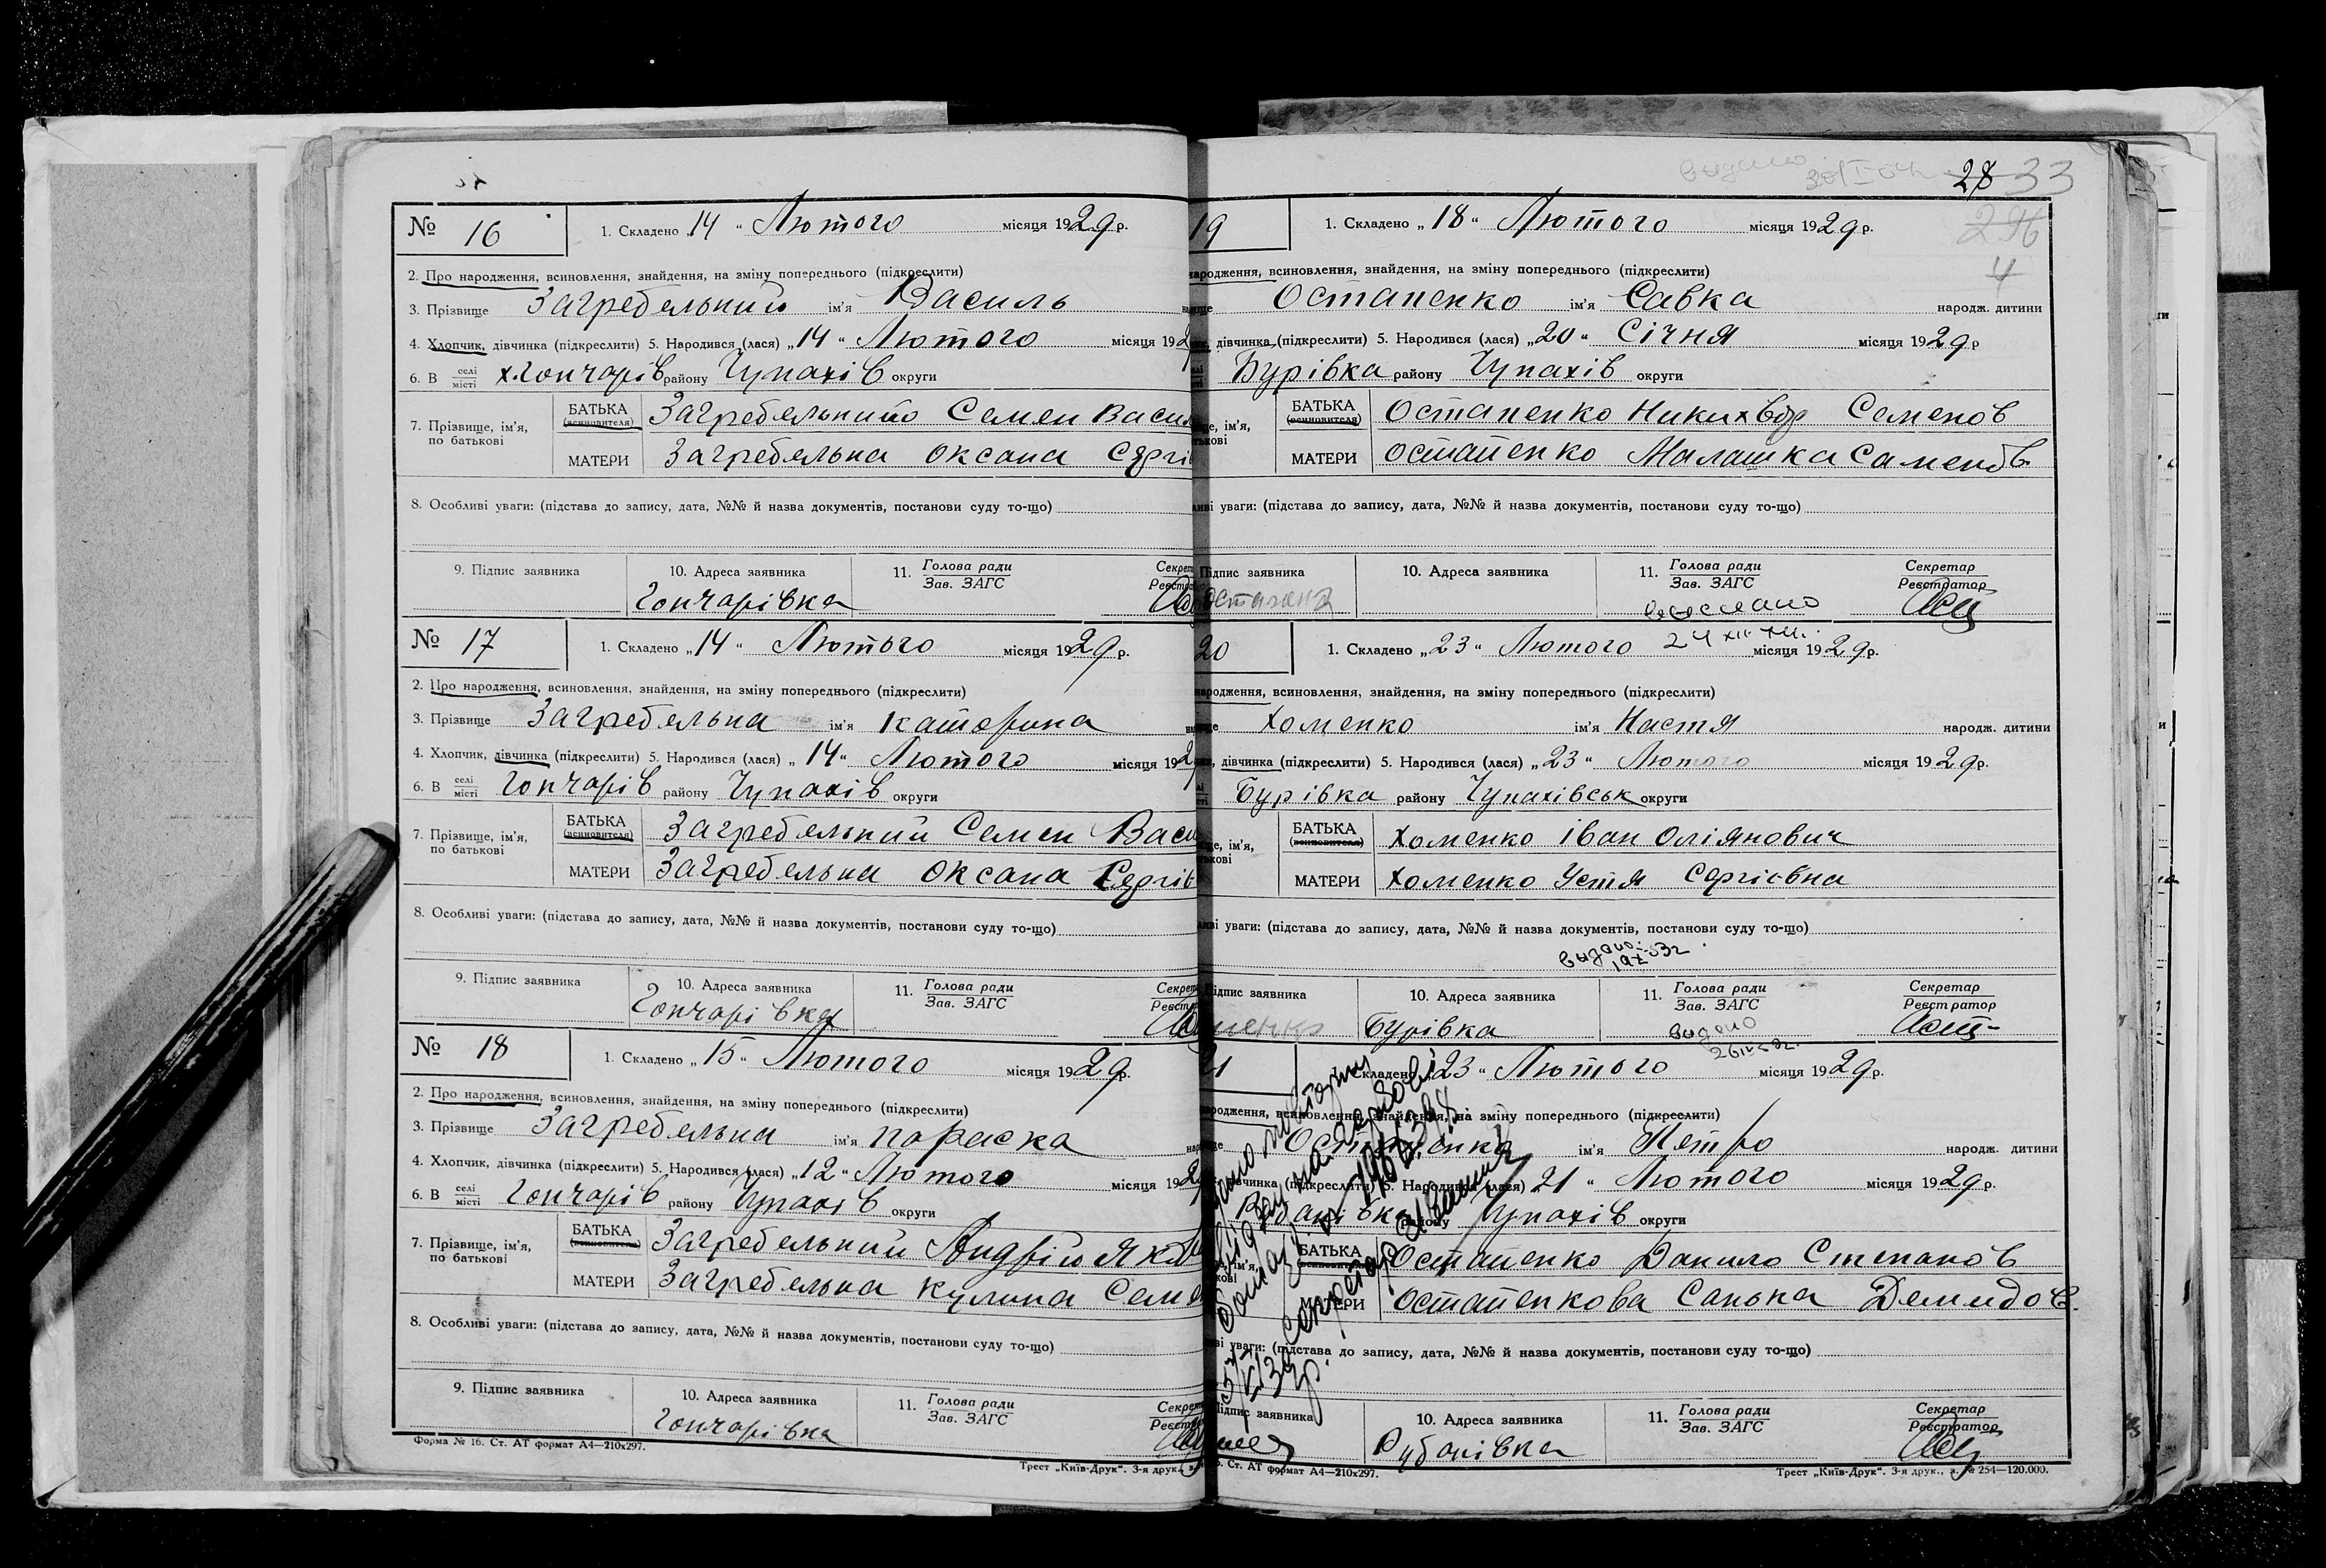 № 16
1. Складено „14“ Лютого місяця 1929 р.
2. Про народження, всиновлення, знайдення, на зміну попереднього (підкреслити)
3. Прізвище Загребельний ім'я Василь
4. Хлопчик, дівчинка (підкреслити) 5. Народився (лася) „14“ Лютого місяця 192
6. В селі місті х. Гончарів району Чупахів округи
7. Прізвище, ім'я, по батькові
БАТЬКА (всиновителя) Загребельний Семен Васи
МАТЕРИ Загребельна Оксана Сергі
8. Особливі уваги: (підстава до запису, дата, №№ й назва документів, постанови суду то-що)
9. Підпис заявника
10. Адреса заявника
Гончарівка
11. Голова ради
Зав. ЗАГС
№ 17
1. Складено „14“ Лютого місяця 1929 р.
2. Про народження, всиновлення, знайдення, на зміну попереднього (підкреслити)
3. Прізвище Загребельна ім'я Катерина
4. Хлопчик, дівчинка (підкреслити) 5. Народився (лася) „14“ Лютого місяця 192
6. В селі місті Гончарів району Чупахів округи
7. Прізвище, ім'я, по батькові
БАТЬКА (всиновителя) Загребельний Семен Васи
МАТЕРИ Загребельна Оксана Сергів
8. Особливі уваги: (підстава до запису, дата, №№ й назва документів, постанови суду то-що)
9. Підпис заявника
10. Адреса заявника
Гончарівка
11. Голова ради
Зав. ЗАГС
№ 18
1. Складено „15“ Лютого місяця 1929 р.
2. Про народження, всиновлення, знайдення, на зміну попереднього (підкреслити)
3. Прізвище Загребельна ім'я Параска
4. Хлопчик, дівчинка (підкреслити) 5. Народився (лася) „12“ Лютого місяця 192
6. В селі місті Гончарів району Чупахів округи
7. Прізвище, ім'я, по батькові
БАТЬКА (всиновителя) Загребельний Андрій Яків
МАТЕРИ Загребельна Кулина Семе
8. Особливі уваги: (підстава до запису, дата, №№ й назва документів, постанови суду то-що)
9. Підпис заявника
10. Адреса заявника
Гончарівка
11. Голова ради
Зав. ЗАГС
Форма № 16. Ст. АТ формат А4—210х297.
Трест „Київ-Друк“. 3-я друк.
28 33
296
4
19
1. Складено „18“ Лютого місяця 1929 р.
народження, всиновлення, знайдення, на зміну попереднього (підкреслити)
Остапенко ім'я Савка народж. дитини
дівчинка (підкреслити) 5. Народився (лася) „20“ Січня місяця 1929 р
Бурівка району Чупахів округи
БАТЬКА (всиновителя) Остапенко Никихвор Семенов
МАТЕРИ Остапенко Малашка Саменов.
уваги: (підстава до запису, дата, №№ й назва документів, постанови суду то-що)
Підпис заявника
10. Адреса заявника
11. Голова ради
Зав. ЗАГС
Секретар
Реєстратор
20
1. Складено „23“ Лютого місяця 1929 р.
народження, всиновлення, знайдення, на зміну попереднього (підкреслити)
Хоменко ім'я Настя народж. дитини
дівчинка (підкреслити) 5. Народився (лася) „23“ Лютого місяця 1929 р.
Бурівка району Чупахівськ округи
БАТЬКА (всиновителя) Хоменко Іван Оліянович
МАТЕРИ Хоменко Устя Сергієвна
уваги: (підстава до запису, дата, №№ й назва документів, постанови суду то-що)
Підпис заявника
10. Адреса заявника
Бурівка
11. Голова ради
Зав. ЗАГС
видано
Секретар
Реєстратор
21
Складено „23“ Лютого місяця 1929 р.
народження, всиновлення, знайдення, на зміну попереднього (підкреслити)
Остапенко ім'я Петро народж. дитини
дівчинка (підкреслити) 5. Народився (лася) „21“ Лютого місяця 1929 р.
району Чупахів округи
БАТЬКА Остапенко Данило Степанов
МАТЕРИ Остапенкова Санька Демидов.
уваги: (підстава до запису, дата, №№ й назва документів, постанови суду то-що)
Підпис заявника
10. Адреса заявника
Рубанівка
11. Голова ради
Зав. ЗАГС
Секретар
Реєстратор
Ст. АТ формат А4—210х297.
Трест „Київ-Друк“. 3-я друк., з. № 254—120.000.